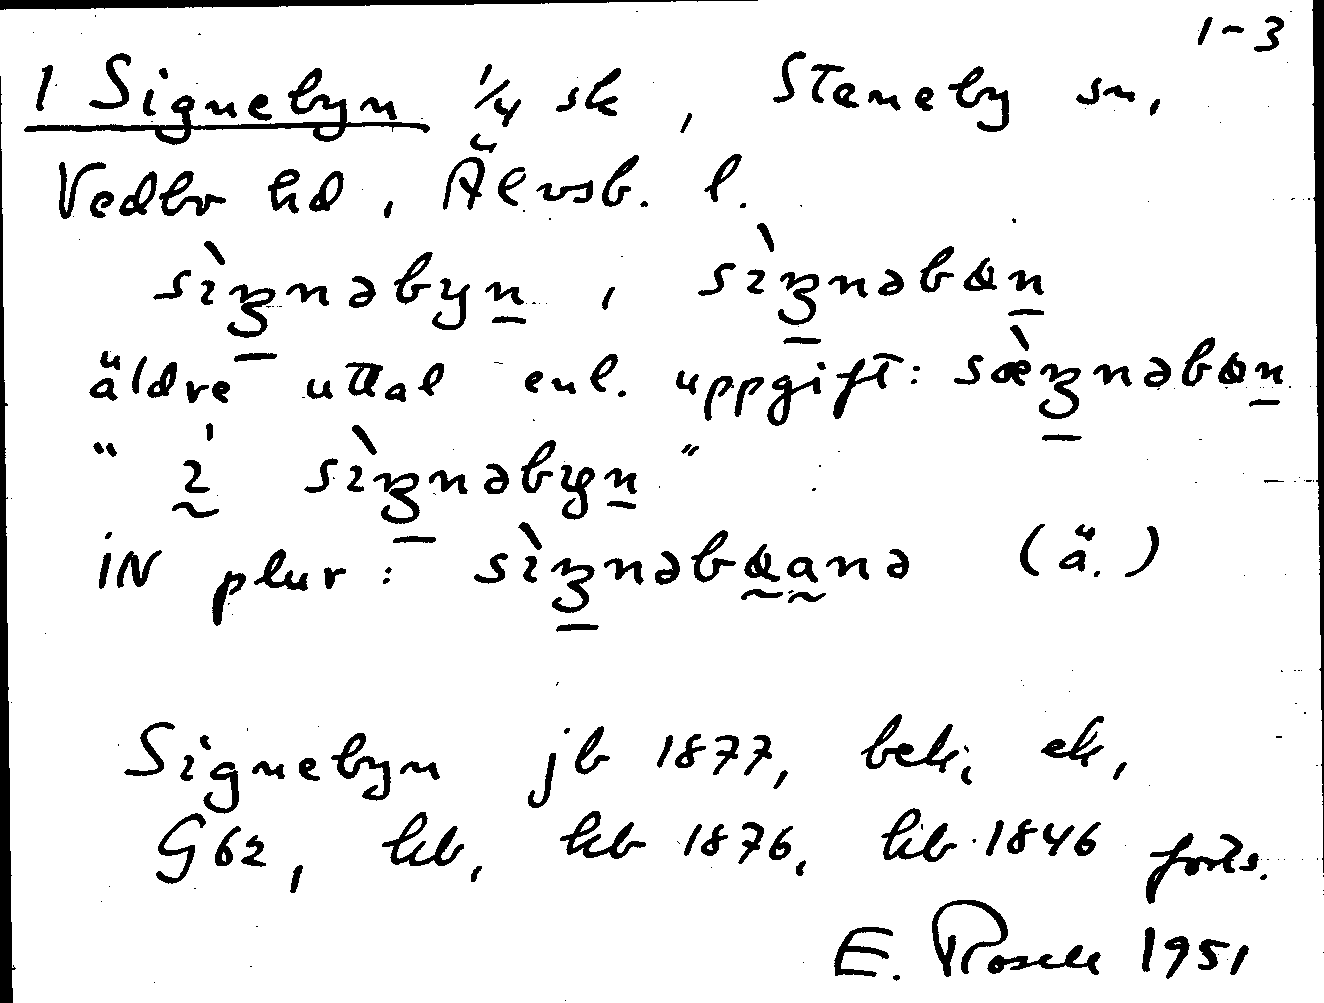 1-3
1 Signebyn 1/4 sk, Steneby sn,
Vedbo hd, Älvsb. l.
sìʒnəbyn, sìʒnəbɷn
äldre uttal enl. uppgift: sæ̀ʒnəbɷn
" ı̍ sìʒnəbyn "
iN plur: sìʒnəbɷanə (ä.)
Signebyn jb 1877, bek, ek,
G62, kb, kb 1876, kb 1846 forts.
E. Rosell 1951